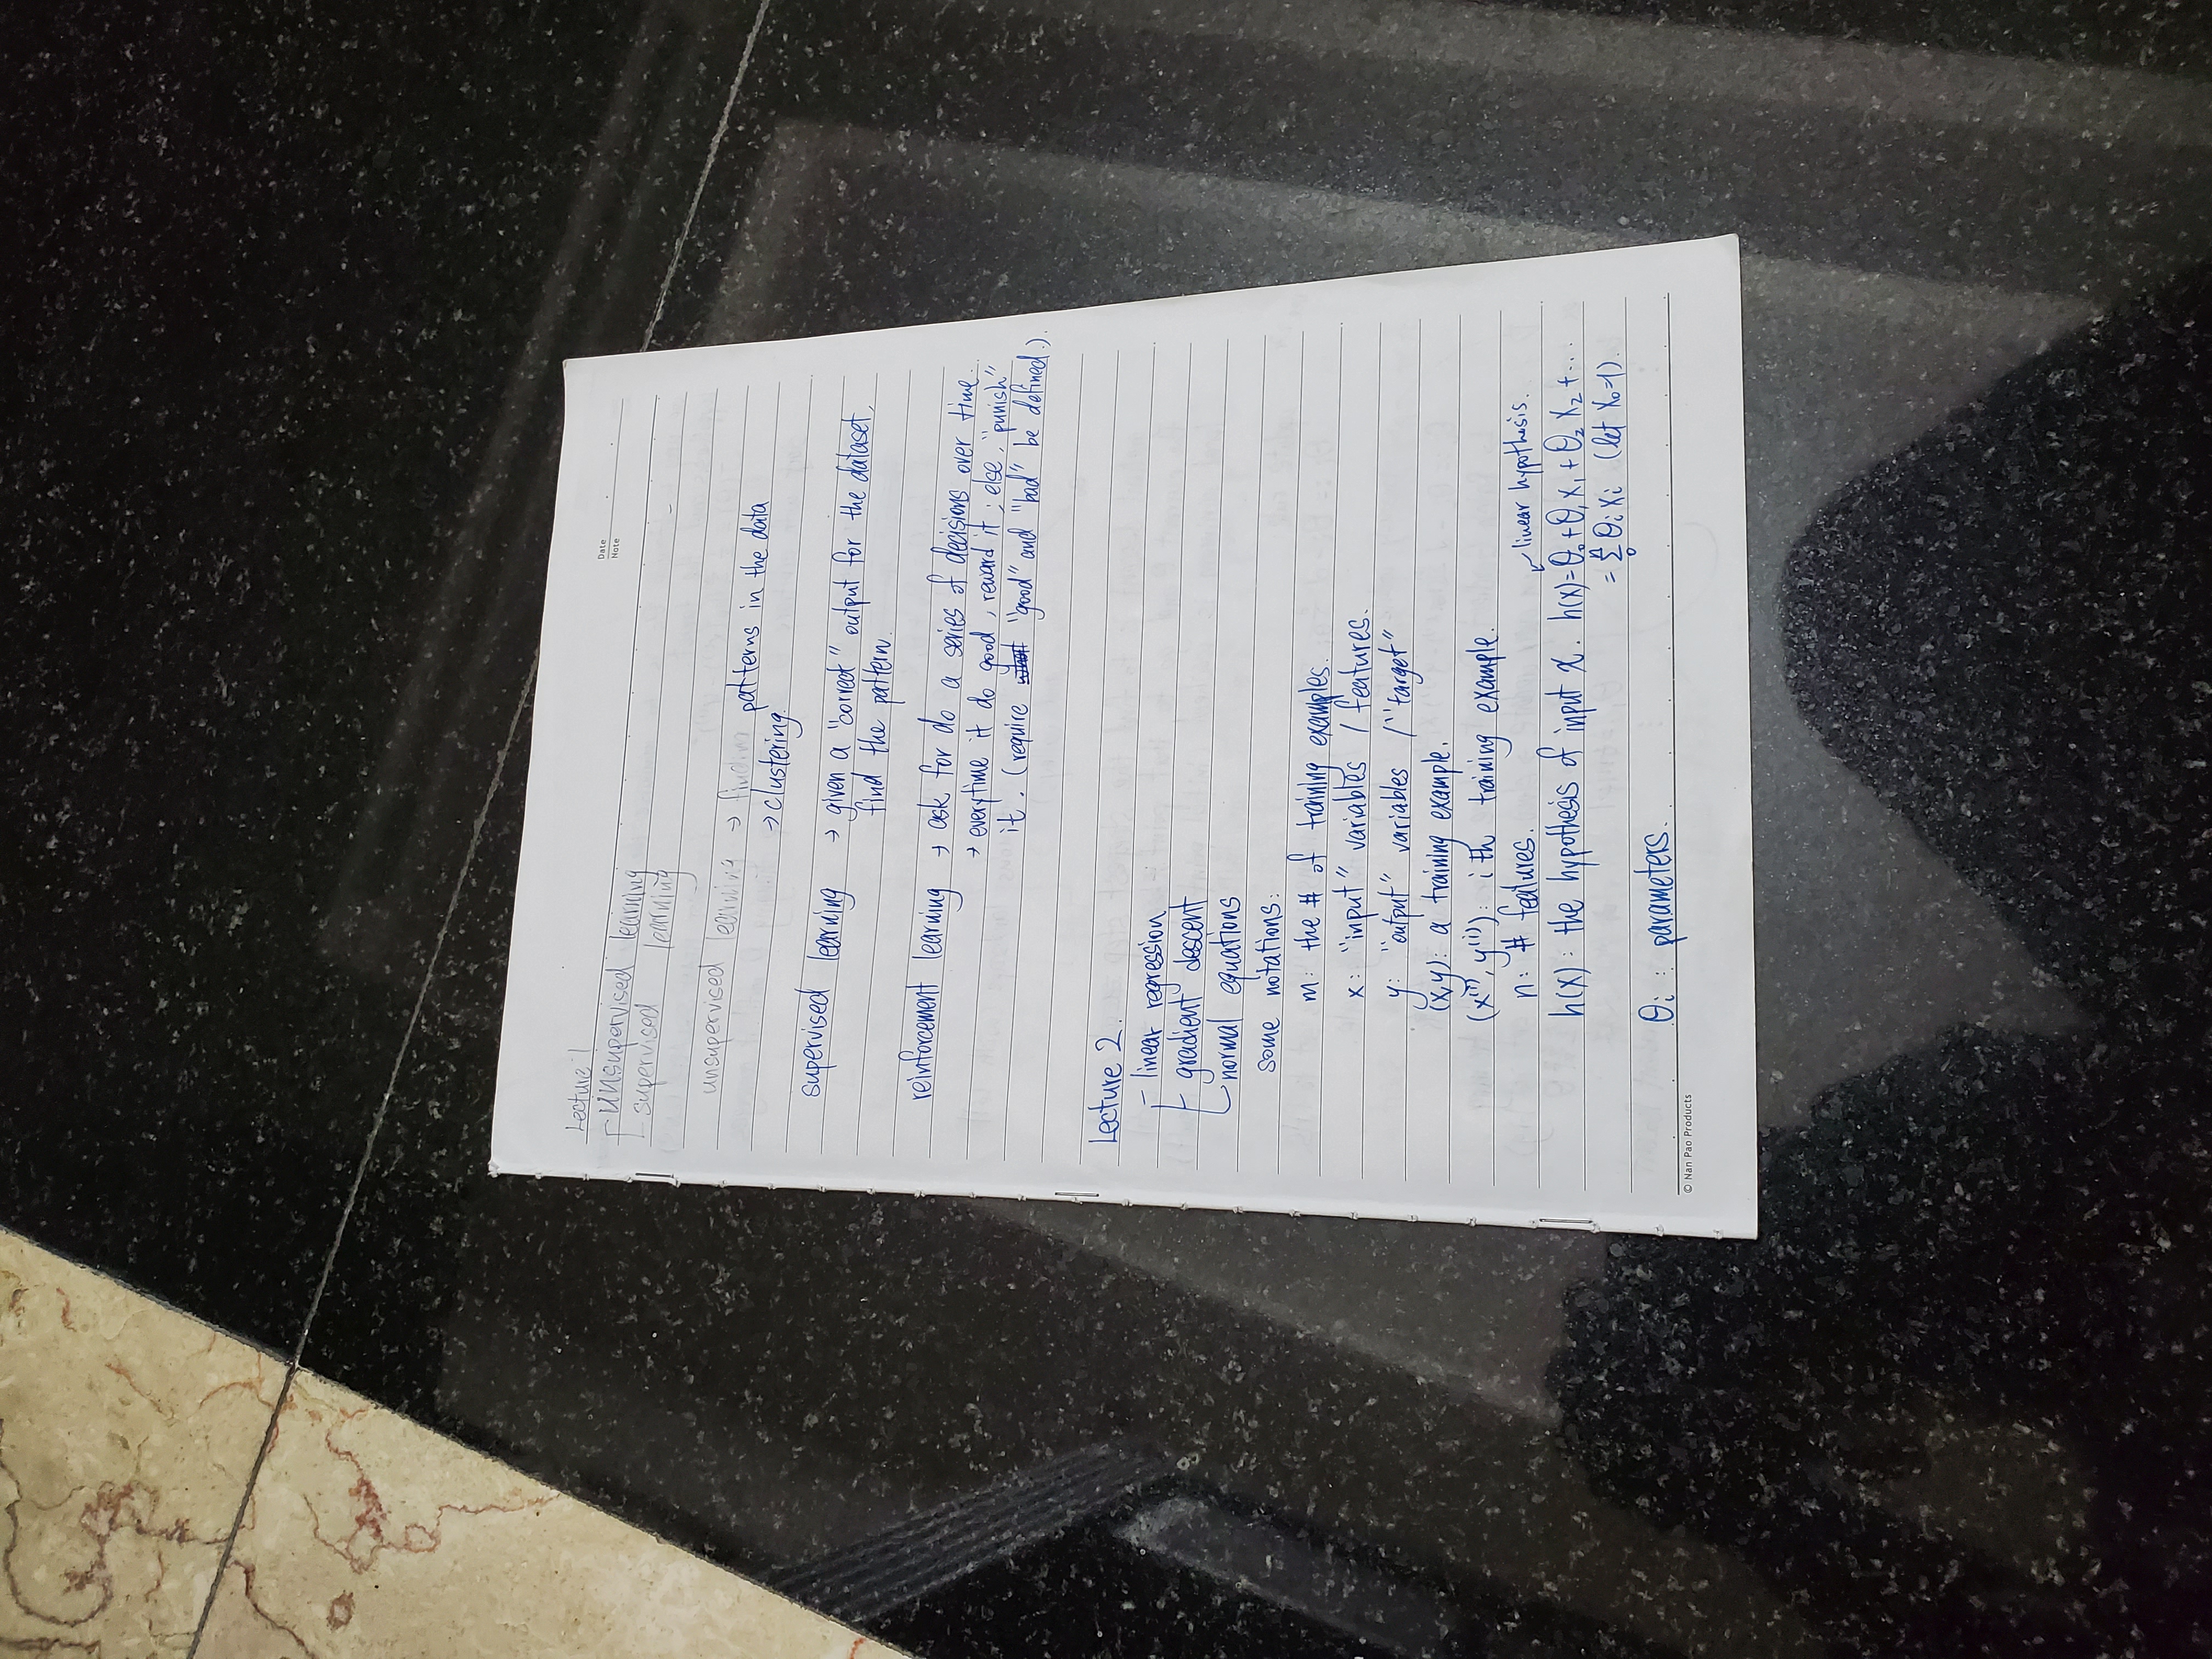 Lecture 1
Date
Note
unsupervised learning
supervised learning
unsupervised learning → find patterns in the data
→ clustering.
supervised learning → given a "correct" output for the dataset,
find the pattern.
reinforcement learning → ask for do a series of decisions over time.
→ everytime it do good, reward it; else, "punish"
it. (require "good" and "bad" be defined.).
Lecture 2.
- linear regression
- gradient descent
- normal equations
some notations:
m: the # of training examples.
x: "input" variables / features.
y: "output" variables / "target"
(x,y): a training example.
(x⁽ⁱ⁾, y⁽ⁱ⁾): i th training example.
n: # features.
↙ linear hypothesis.
h(x): the hypothesis of input x. h(x)=θ₀+θ₁x₁+θ₂x₂+...
= Σ₀ⁿ θᵢxᵢ (let x₀=1).
θᵢ: parameters.
© Nan Pao Products